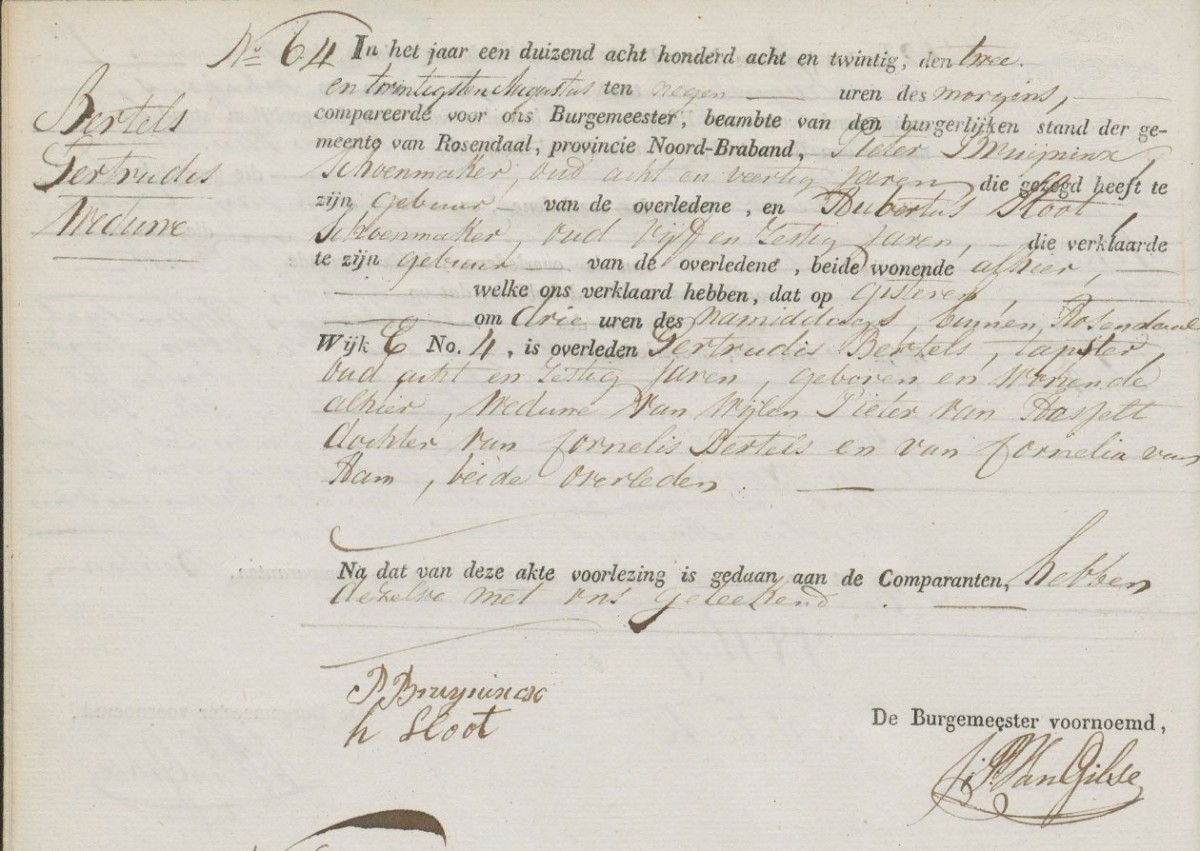 No 64 In het jaar een duizend acht honderd acht en twintig, den twee
en twintigsten Augustus ten negen uren des morgens,
compareerde voor ons Burgemeester, beambte van den burgerlijken stand der ge-
meente van Rosendaal, provincie Noord-Braband, Pieter Bruijninx,
Schoenmaker, oud acht en veertig Jaren, die gezegd heeft te
zijn gebuur van de overledene, en Hubertus Sloot
Schoenmaker, oud vijf en Zestig Jaren, die verklaarde
te zijn gebuur van de overledene, beide wonende alhier,
welke ons verklaard hebben, dat op gisteren,
om drie uren des namiddags, binnen Rosendaal
Wijk E No. 4, is overleden Gertrudis Bertels, tapster,
oud acht en Zestig Jaren, geboren en wonende
alhier, Weduwe van wijlen Pieter van Hasselt
dochter van Cornelis Bertels en van Cornelia van
Ham, beide overleden.
Bertels
Gertrudis
Weduwe
Na dat van deze akte voorlezing is gedaan aan de Comparanten, hebben
dezelve met ons geteekend.
P Bruynincx
h Sloot
De Burgemeester voornoemd,
Van Gilse